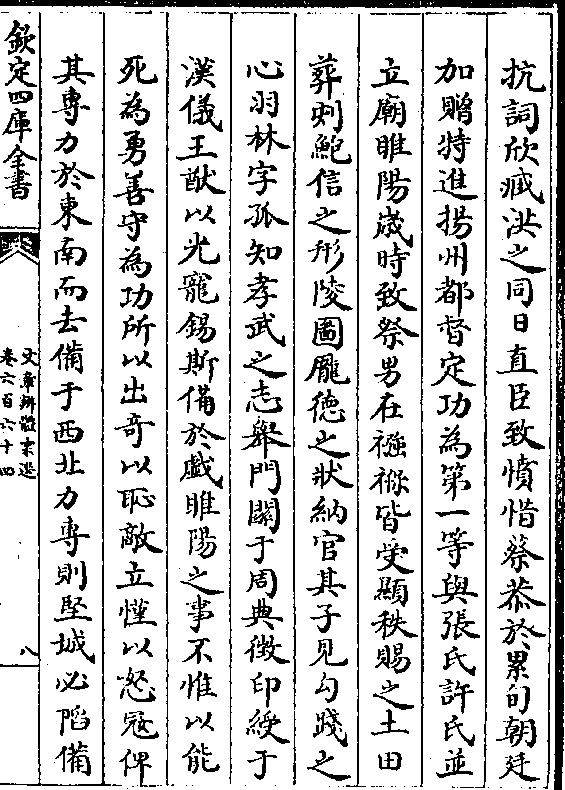 抗詞欣臧洪之同日直臣致憤惜蔡恭於累旬朝廷
加贈特進揚州都督定功為第一等與張氏許氏並
立廟睢陽歲時致祭男在襁褓皆受顯秩賜之土田
葬則鮑信之形陵圖龐德之狀納官其子見勾踐之
心羽林字孤知孝武之志舉門關于周典徵印綬于
漢儀王猷以光寵錫斯備於戲睢陽之事不惟以能
死為勇善守為功所以出奇以恥敵立慬以怒寇俾
其專力於東南而去備于西北力專則堅城必陷備
欽定四庫全書
文章辨體彙選
卷六百六十四
八